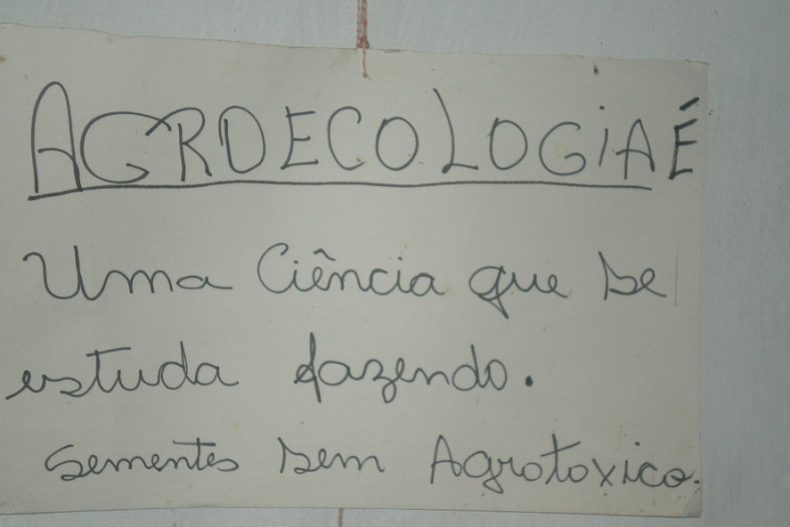 AGROECOLOGIA É
Uma Ciência que se
estuda fazendo.
Sementes sem Agrotoxico.